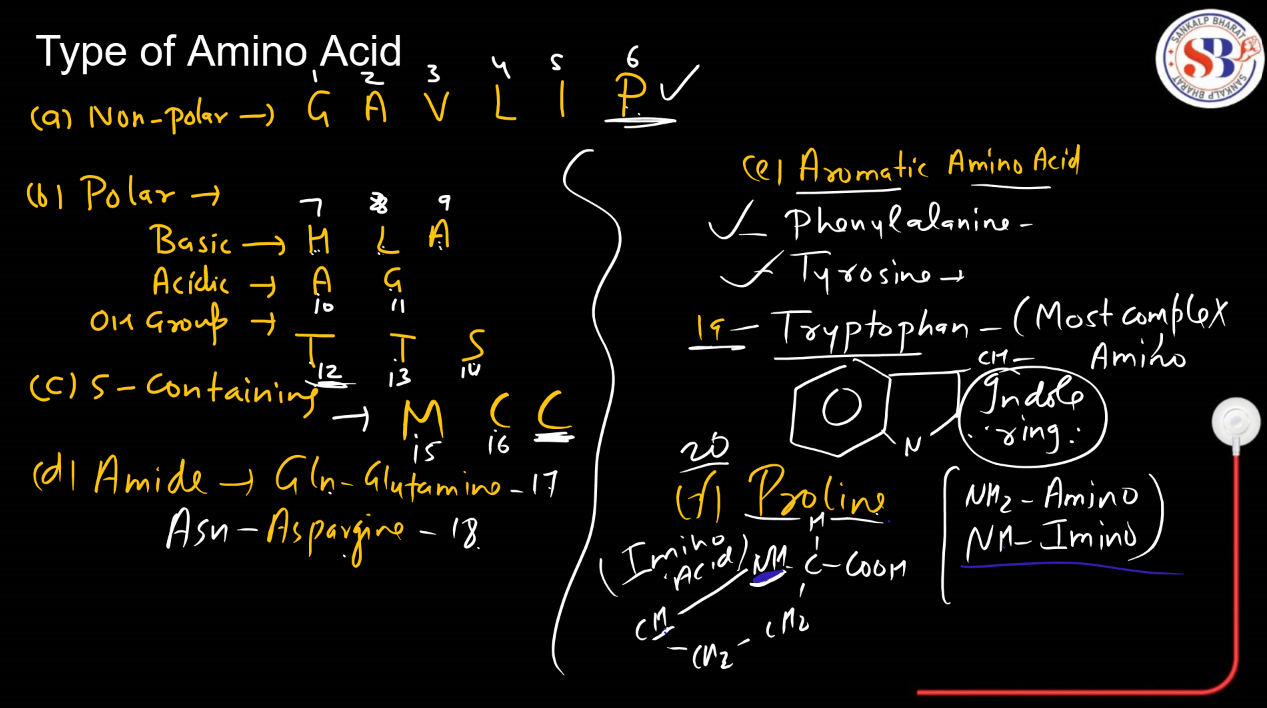 Type of Amino Acid
SANKALP BHARAT
SB
SANKALP BHARAT
1 2 3 4 5 6
(a) Non-polar → G A V L I P ✓
(b) Polar →
7 8 9
Basic → H L A
Acidic → A G
10 11
OH Group → T T S
12 13 14
(c) S-Containing
→ M C C
15 16
(d) Amide → Gln-Glutamine-17
Asn-Aspargine-18
(e) Aromatic Amino Acid
✓ - Phenylalanine-
✓ - Tyrosine →
19 - Tryptophan - (Most complex
Amino
CH-
Indole
ring
N
20
(f) Proline
(Imino
Acid)
H
NH-C-COOH
CH
-CH2-CH2
(NH2-Amino
NH-Imino)